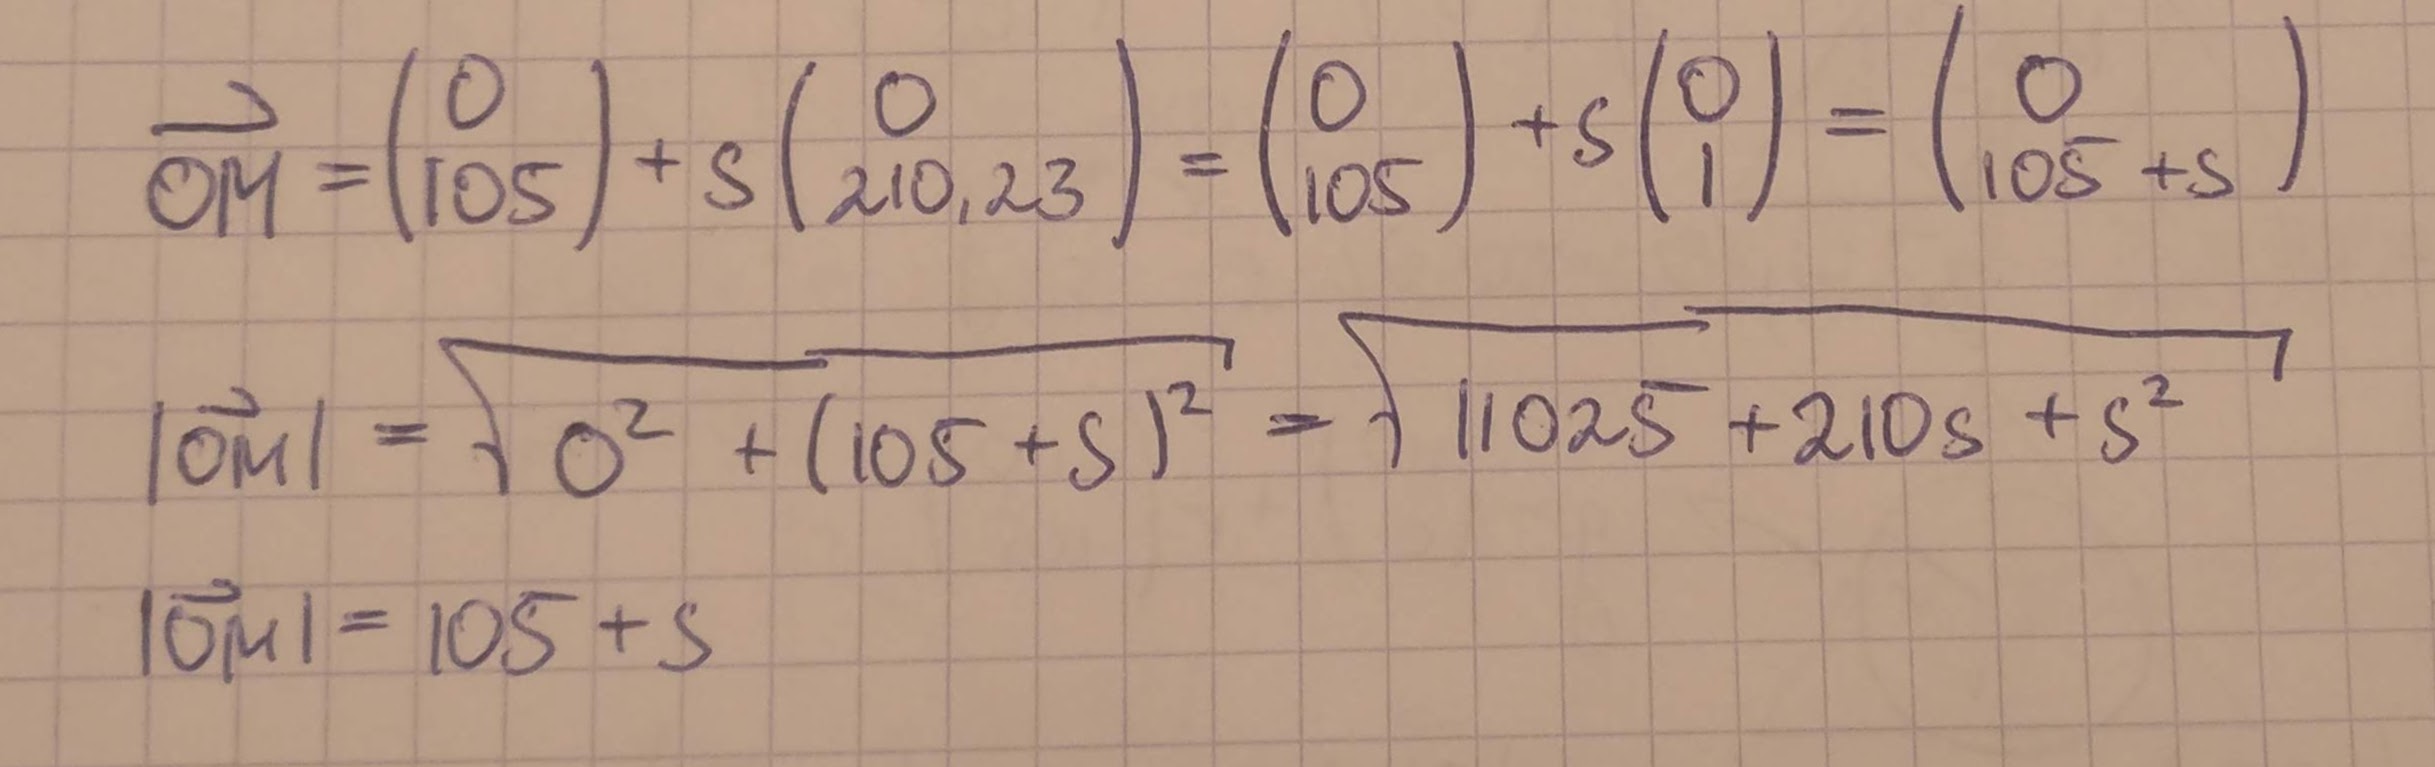 $\overrightarrow{OM} = \begin{pmatrix} 0 \\ 105 \end{pmatrix} + s \begin{pmatrix} 0 \\ 210,23 \end{pmatrix} = \begin{pmatrix} 0 \\ 105 \end{pmatrix} + s \begin{pmatrix} 0 \\ 1 \end{pmatrix} = \begin{pmatrix} 0 \\ 105 + s \end{pmatrix}$
$|\overrightarrow{OM}| = \sqrt{0^2 + (105 + s)^2} = \sqrt{11025 + 210s + s^2}$
$|\overrightarrow{OM}| = 105 + s$